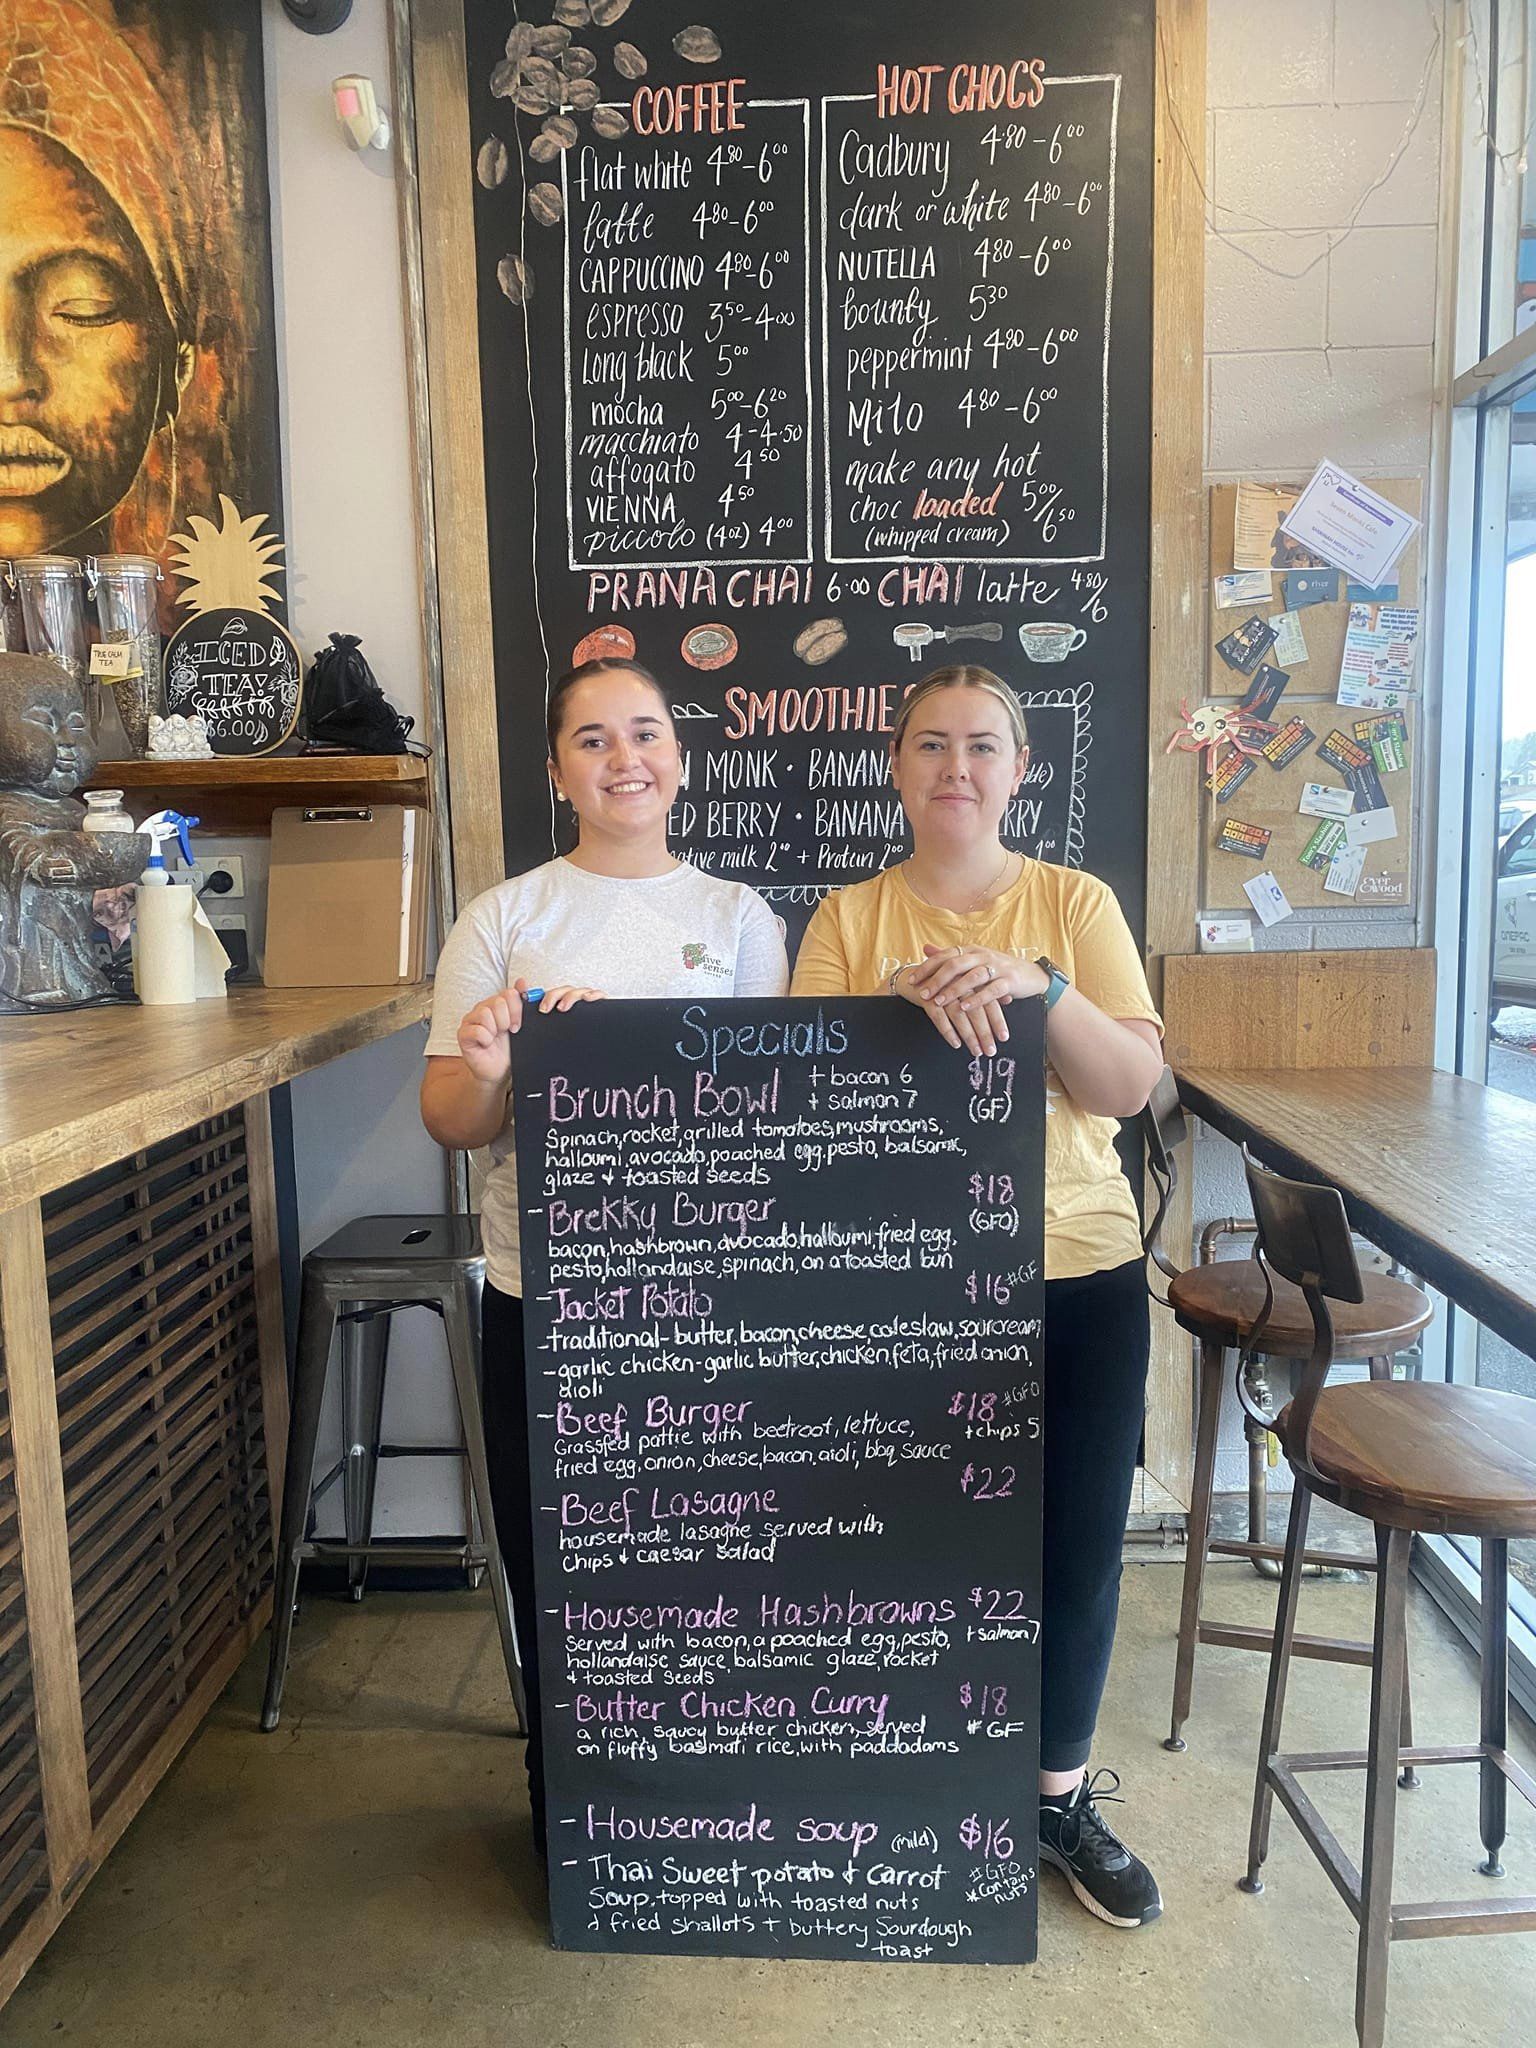 COFFEE
flat white 4.80-6.00
latte 4.80-6.00
CAPPUCCINO 4.80-6.00
espresso 3.50-4.00
Long black 5.00
mocha 5.00-6.20
macchiato 4-4.50
affogato 4.50
VIENNA 4.50
piccolo (4oz) 4.00
HOT CHOCS
Cadbury 4.80-6.00
dark or white 4.80-6.00
NUTELLA 4.80-6.00
bounty 5.30
peppermint 4.80-6.00
Milo 4.80-6.00
make any hot
choc loaded 5.00/6.50
(whipped cream)
PRANA CHAI 6.00 CHAI latte 4.80/6
SMOOTHIE
MONK · BANANA
ED BERRY · BANANA RRY
native milk 2.00 + Protein 2.00 1.00
ICED
TEA!
$6.00
TEA
Seven Monks Cafe
five
senses
Ever
Wood
ONEPAC
Specials
- Brunch Bowl + bacon 6 $19
+ salmon 7 (GF)
Spinach, rocket, grilled tomatoes, mushrooms,
halloumi, avocado, poached egg, pesto, balsamic,
glaze + toasted seeds
- Brekky Burger $18
(GFO)
bacon, hashbrown, avocado, halloumi, fried egg,
pesto, hollandaise, spinach, on a toasted bun
- Jacket Potato $16 #GF
- traditional - butter, bacon, cheese, coleslaw, sourcream
- garlic chicken - garlic butter, chicken, feta, fried onion,
aioli
- Beef Burger $18 #GFO
+ chips 5
Grassfed pattie with beetroot, lettuce,
fried egg, onion, cheese, bacon, aioli, bbq sauce
- Beef Lasagne $22
housemade lasagne served with
chips + caesar salad
- Housemade Hashbrowns $22
+ Salmon 7
Served with bacon, a poached egg, pesto,
hollandaise sauce, balsamic glaze, rocket
+ toasted seeds
- Butter Chicken Curry $18
# GF
a rich, saucy butter chicken, served
on fluffy basmati rice, with paddadams
- Housemade soup (mild) $16
- Thai Sweet potato + Carrot #GFO
*Contains nuts
Soup, topped with toasted nuts
+ fried shallots + buttery Sourdough
toast